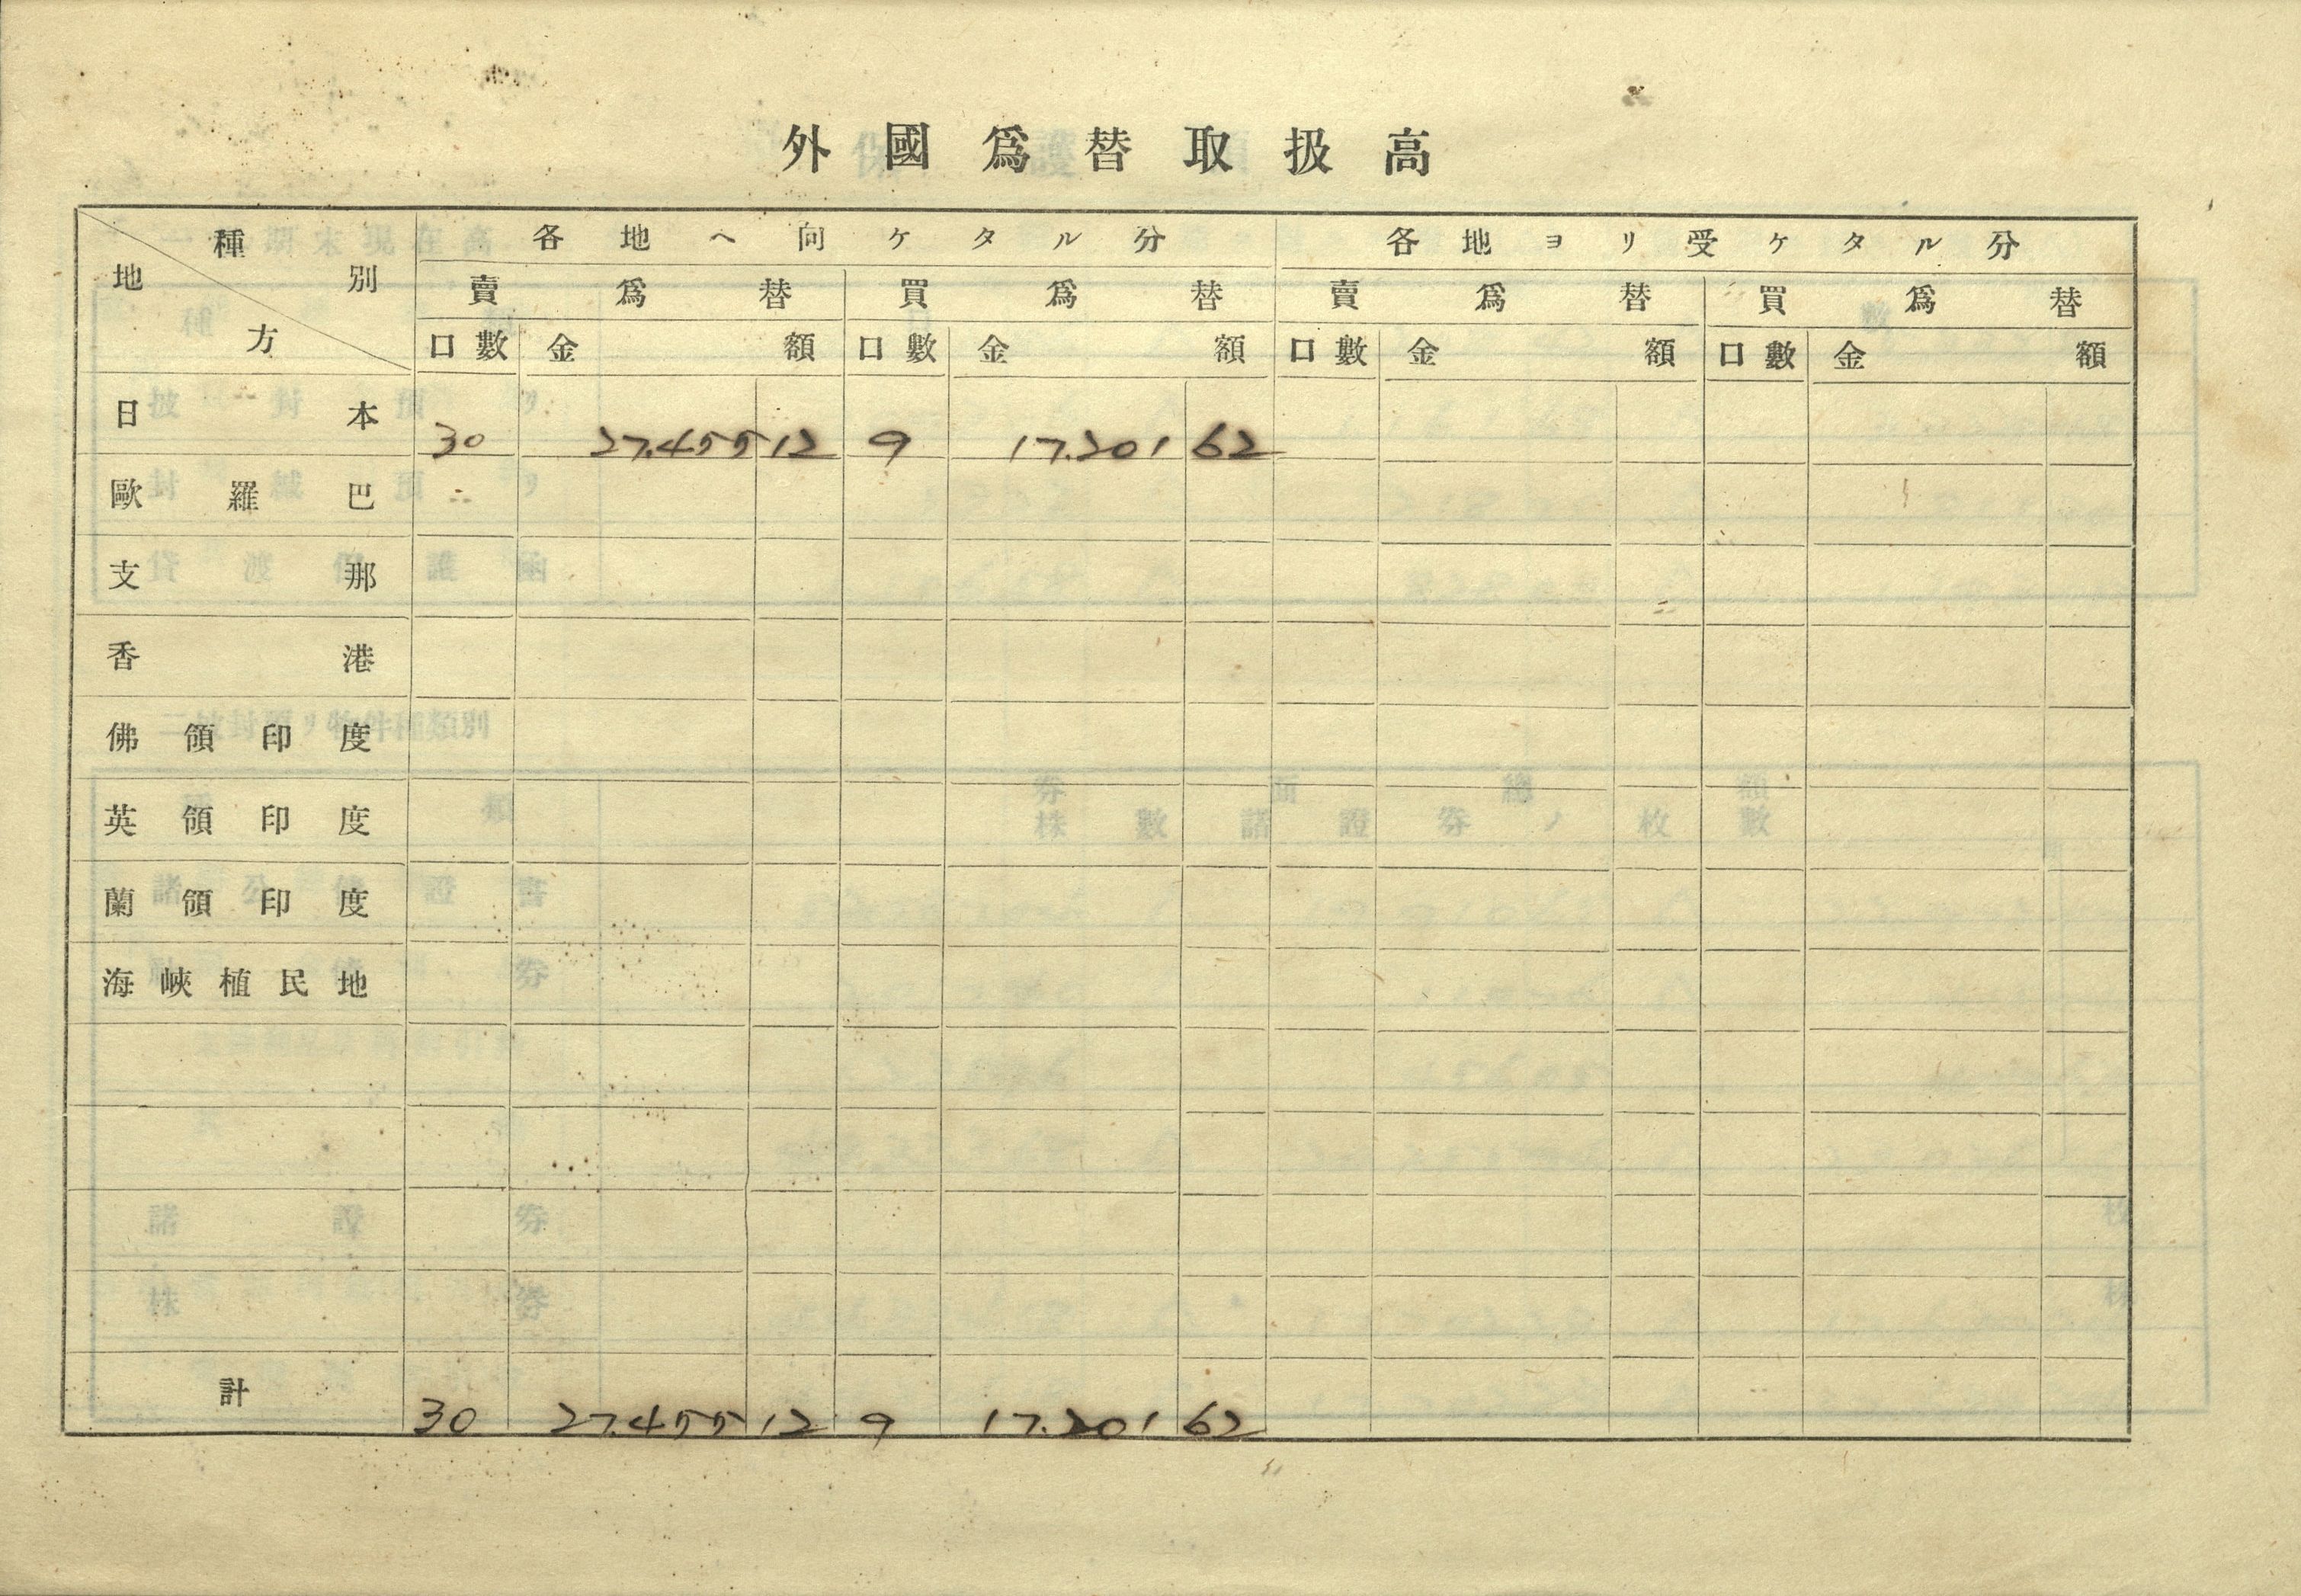 外國爲替取扱高
種別 地方 各地ヘ向ケタル分 各地ヨリ受ケタル分
賣爲替 買爲替 賣爲替 買爲替
口數 金額 口數 金額 口數 金額 口數 金額
日本 30 27.455 12 9 17.201 62
歐羅巴
支那
香港
佛領印度
英領印度
蘭領印度
海峽植民地
計 30 27.455 12 9 17.201 62